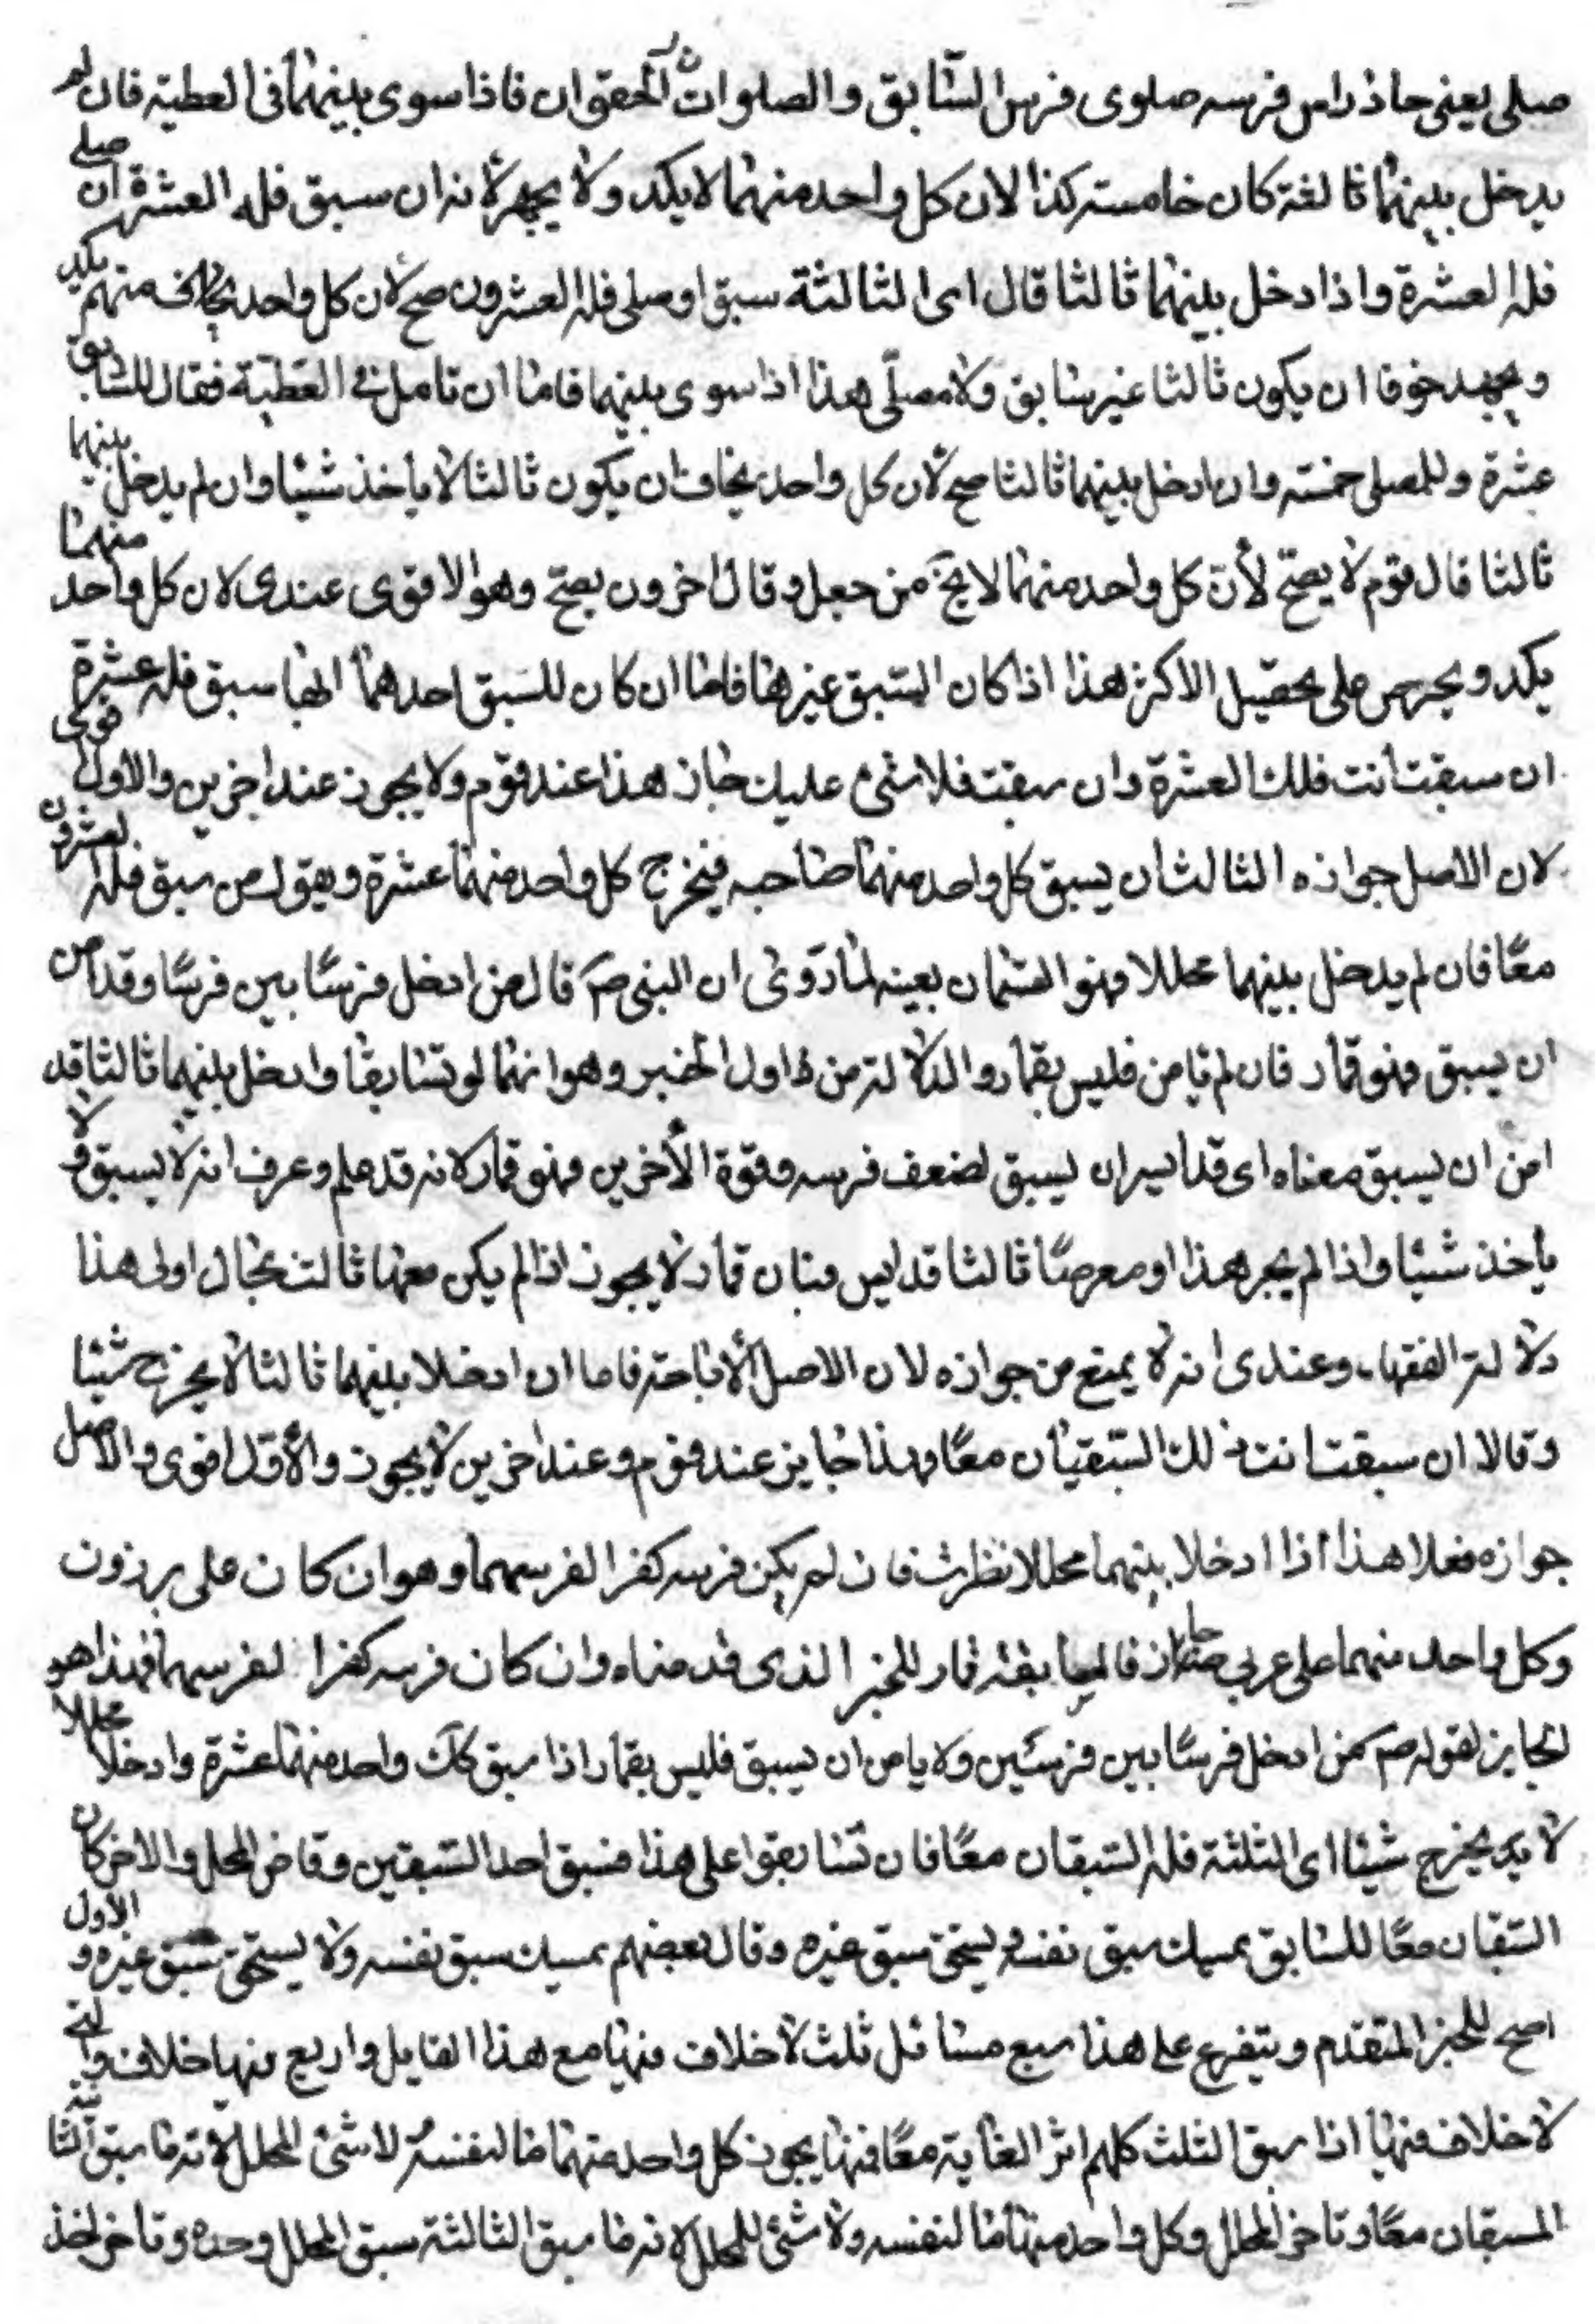 صلى يعنى حاذ راس فرسه صلوى فرس السابق والصلوان الحقوان فاذا سوى بينهما فى العطية فان لم
يدخل بينهما ثالثة كان خامسته كذا لان كل واحد منهما لا يكد ولا يجهد لانه ان سبق فله العشرة ان صلى
فله العشرة واذا دخل بينهما ثالثا قال اى الثالثة سبق او صلى فله العشرون صح لان كل واحد يخاف منهم يكد
ويجهد خوفا ان يكون ثالثا غير سابق ولا مصلّى هذا اذا سوى بينهما فاما ان تامل فى العطية فقال للسابق
عشرة وللمصلى خمسة وان ادخل بينهما ثالثا صح لان كل واحد يخاف ان يكون ثالثا لا ياخذ شيئا وان لم يدخل بينهما
ثالثا قال قوم لا يصح لأن كل واحد منهما لا يخ من جعل وقال اخرون يصح وهو الاقوى عندى لان كل واحد منهما
يكد ويحرص على تحصيل الاكثر هذا اذا كان السبق غيرهما فاما ان كان للسبق احدهما ايهما سبق فله عشرة
ان سبقت انت فلك العشرة وان سبقت فلا شئ عليك جاز هذا عند قوم ولا يجوز عند اخرين والاول قوى
لان الاصل جوازه الثالث ان يسبق كل واحد منهما صاحبه فيخرج كل واحد منهما عشرة ويقول من سبق فله العشرون
معًا فان لم يدخل بينهما محللا فهو القمار بعينه لما روى ان النبى صم قال من ادخل فرسًا بين فرسًا وقد امن
ان يسبق فهو قمار فان لم يامن فليس بقمار والدلالة من اول الخبر وهو انهما لو تسابقا وادخل بينهما ثالثا قد
امن ان يسبق معناه اى قد ايس ان يسبق لضعف فرسه وقوة الأخرين فهو قمار لانه قد علم وعرف انه لا يسبق ولا
ياخذ شيئا واذا لم يجز هذا او معهما ثالثا قد ايس فبان قمار لا يجوز اذا لم يكن معهما ثالث بحال اولى هذا
دلالة الفقهاء وعندى انه لا يمنع من جوازه لان الاصل الأباحة فاما ان ادخلا بينهما ثالثا لا يخرج شيئا
وقالا ان سبقت انت فلك السبقان معًا فهذا جايز عند قوم وعند اخرين لا يجوز والأول اقوى والاصل
جوازه فعلا هذا اذا ادخلا بينهما محللا نظرت فان لم يكن فرسه كفرا لفرسهما وهو ان كان على برذون
وكل واحد منهما على عربى جاز فالمسابقة قمار للخبر الذى قدمناه وان كان فرسه كفرا لفرسهما فهذا هو
الجايز لقوله صم من ادخل فرسًا بين فرسين ولا يامن ان يسبق فليس بقمار اذا سبق كل واحد منهما عشرة وادخلا محللا
لا يخرج شيئا اى الثلثة فله السبقان معًا فان تسابقوا على هذا فسبق احد السبقين وقاض المحل والاخر كان
السبقان معًا للسابق يمسك سبق نفسه ويستحق سبق غيره وقال بعضهم يمسك سبق نفسه ولا يستحق سبق غيره والاول
اصح للخبر المتقدم ويتفرع على هذا سبع مسائل ثلث لا خلاف فيها مع هذا القايل واربع فيها خلاف والتى
لا خلاف فيها اذا سبق الثلث كلهم اثر الغاية معًا فيها يجوز كل واحد منهما مالنفسه لا شئ للمحلل لانه ما سبق الثانية
المسبقان معًا وتاخر المحلل وكل واحد منهما ما لنفسه ولا شئ للمحلل لانه ما سبق الثالثة سبق المحلل وحده وتاخر اخذ